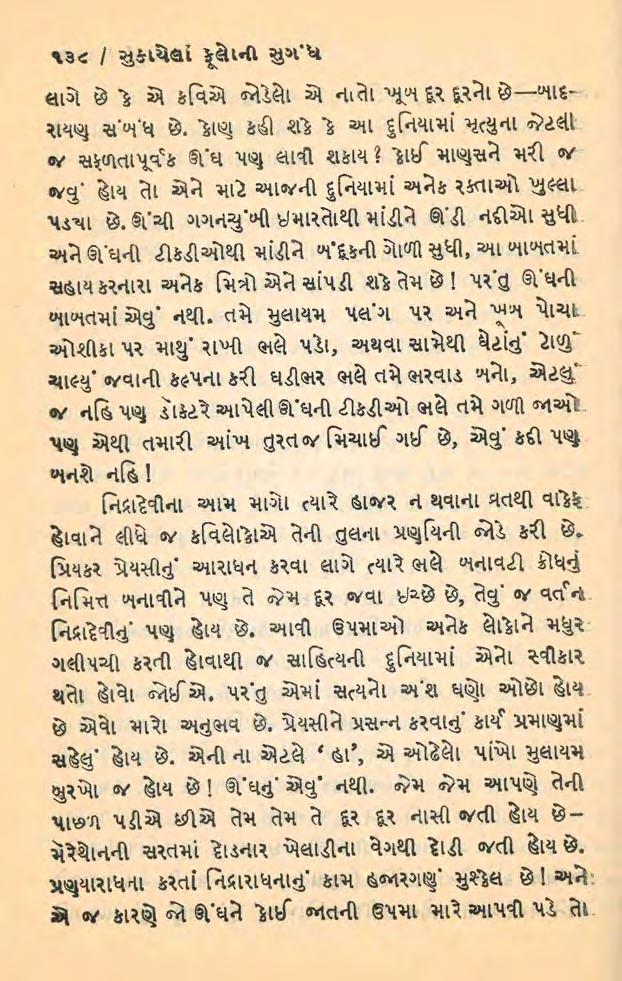 ૧૩૮ / સુકાયેલાં ફૂલોની સુગંધ
લાગે છે કે એ કવિએ જોડેલો એ નાતો ખૂબ દૂર દૂરનો છે—બાદ-
રાયણ સંબંધ છે. કોણ કહી શકે કે આ દુનિયામાં મૃત્યુના જેટલી
જ સફળતાપૂર્વક ઊંઘ પણ લાવી શકાય? કોઈ માણસને મરી જ
જવું હોય તો એને માટે આજની દુનિયામાં અનેક રસ્તાઓ ખુલ્લા
પડ્યા છે. ઊંચી ગગનચુંબી ઇમારતોથી માંડીને ઊંડી નદીઓ સુધી
અને ઊંઘની ટીકડીઓથી માંડીને બંદૂકની ગોળી સુધી, આ બાબતમાં
સહાય કરનારા અનેક મિત્રો એને સાંપડી શકે તેમ છે! પરંતુ ઊંઘની
બાબતમાં એવું નથી. તમે મુલાયમ પલંગ પર અને ખૂબ પોચા
ઓશીકા પર માથું રાખી ભલે પડો, અથવા સામેથી ઘેટાંનું ટોળું
ચાલ્યું જવાની કલ્પના કરી ઘડીભર ભલે તમે ભરવાડ બનો, એટલું
જ નહિ પણ ડૉક્ટરે આપેલી ઊંઘની ટીકડીઓ ભલે તમે ગળી જાઓ
પણ એથી તમારી આંખ તુરતજ મિચાઈ ગઈ છે, એવું કદી પણ
બનશે નહિ!
નિદ્રાદેવીના આમ માગો ત્યારે હાજર ન થવાના વ્રતથી વાકેફ
હોવાને લીધે જ કવિલોકોએ તેની તુલના પ્રણયિની જોડે કરી છે.
પ્રિયકર પ્રેયસીનું આરાધન કરવા લાગે ત્યારે ભલે બનાવટી ક્રોધનું
નિમિત્ત બનાવીને પણ તે જેમ દૂર જવા ઇચ્છે છે, તેવું જ વર્તન
નિદ્રાદેવીનું પણ હોય છે. આવી ઉપમાઓ અનેક લોકોને મધુર
ગલીપચી કરતી હોવાથી જ સાહિત્યની દુનિયામાં એનો સ્વીકાર
થતો હોવો જોઈએ. પરંતુ એમાં સત્યનો અંશ ઘણો ઓછો હોય
છે એવો મારો અનુભવ છે. પ્રેયસીને પ્રસન્ન કરવાનું કાર્ય પ્રમાણમાં
સહેલું હોય છે. એની ના એટલે ‘હા’, એ ઓઢેલો પાંખો મુલાયમ
બુરખો જ હોય છે! ઊંઘનું એવું નથી. જેમ જેમ આપણે તેની
પાછળ પડીએ છીએ તેમ તેમ તે દૂર દૂર નાસી જતી હોય છે–
મૅરેથોનની સરતમાં દોડનાર ખેલાડીના વેગથી દોડી જતી હોય છે.
પ્રણયારાધના કરતાં નિદ્રારાધનાનું કામ હજારગણું મુશ્કેલ છે! અને
એ જ કારણે જો ઊંઘને કોઈ જાતની ઉપમા મારે આપવી પડે તો